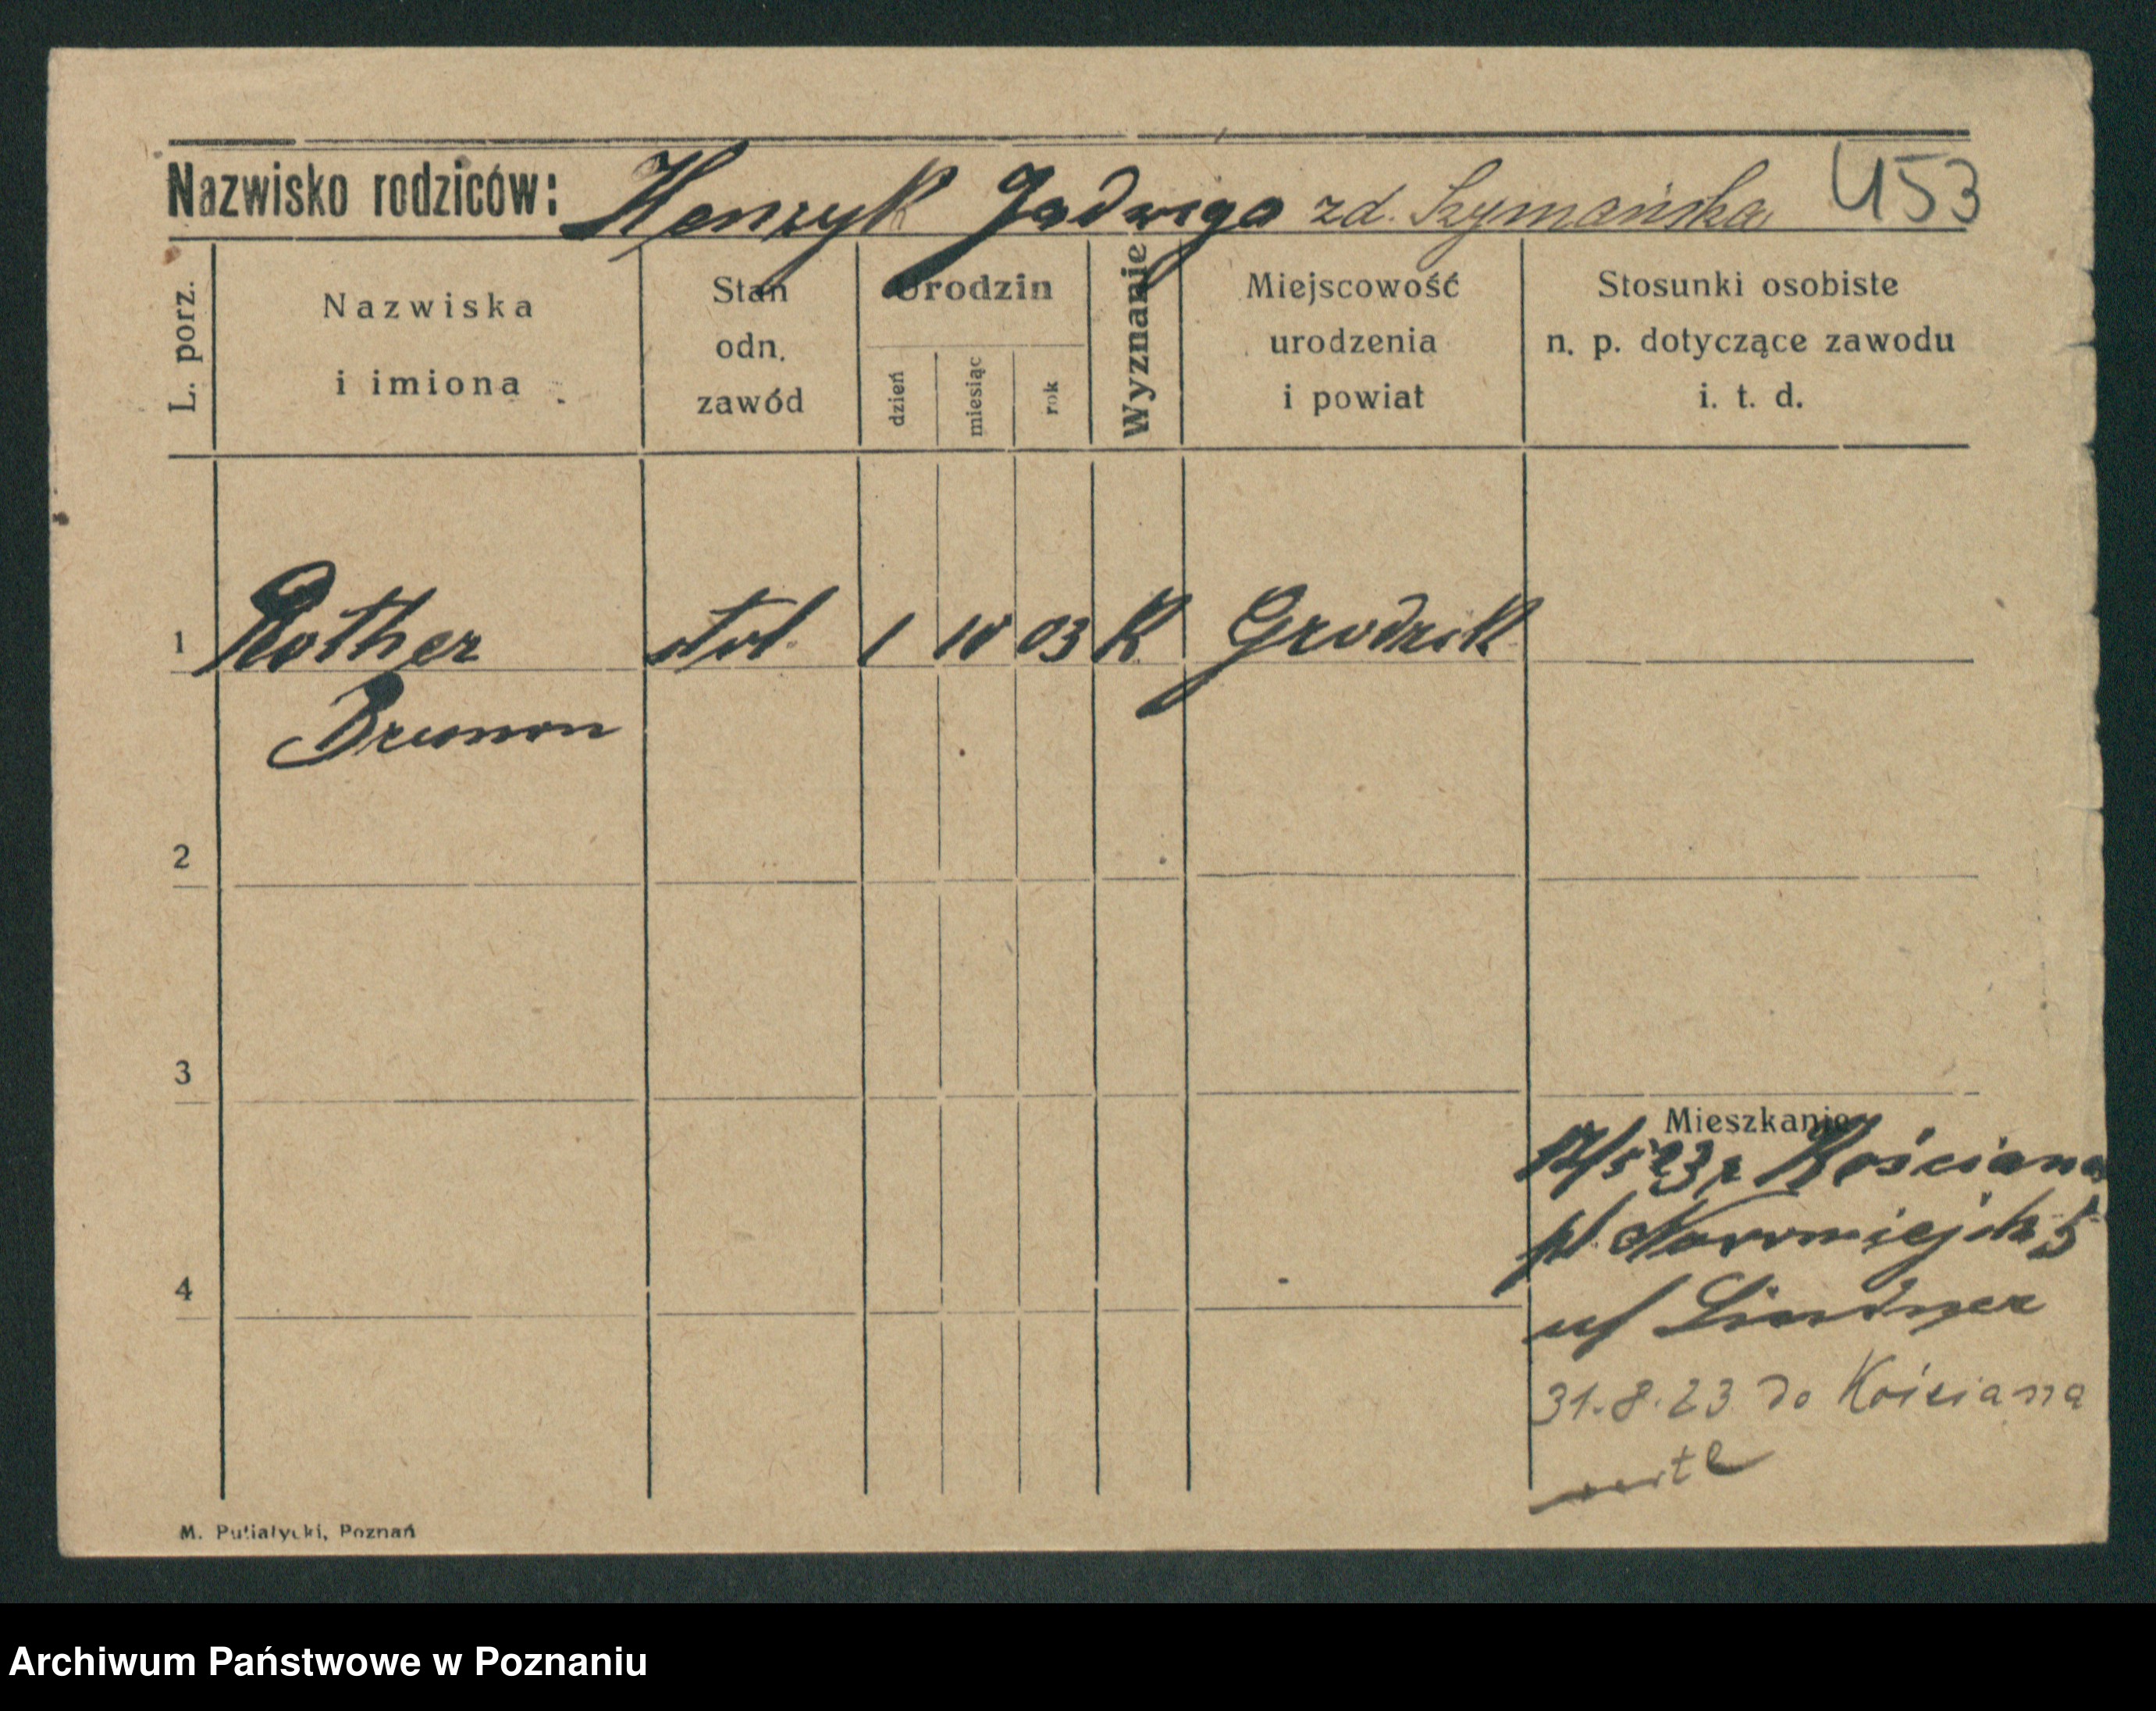 Nazwisko rodziców: Henryk Jadwiga zd. Szymańska 453
L. porz.
Nazwiska
i imiona
Stan
odn.
zawód
Urodzin
dzień
miesiąc
rok
Wyznanie
Miejscowość
urodzenia
i powiat
Stosunki osobiste
n. p. dotyczące zawodu
i. t. d.
1 Rother stol. 1 10 03 K Grodzisk
Brunon
2
3
Mieszkanie
23 z Kościana
pl Nowomiejsk 5
u/ Lindner
4
31.8.23 do Kościana
M. Putiatycki, Poznań
Archiwum Państwowe w Poznaniu